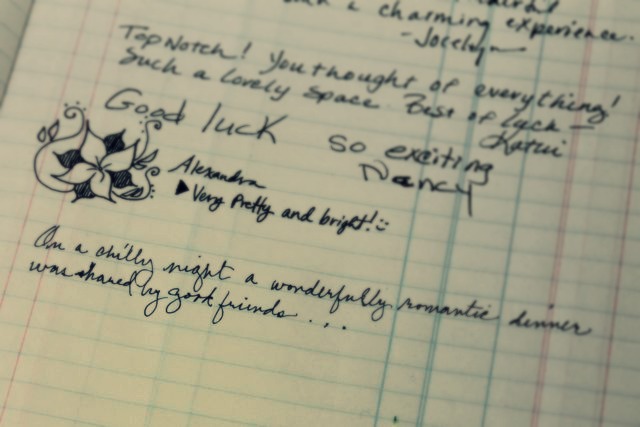 a charming experience.
-Jocelyn
Top Notch! You thought of everything!
Such a lovely space. Best of luck -
Good luck so exciting
Nancy
Alexandra
▶Very Pretty and bright! :)
On a chilly night a wonderfully romantic dinner
was shared by good friends . . .